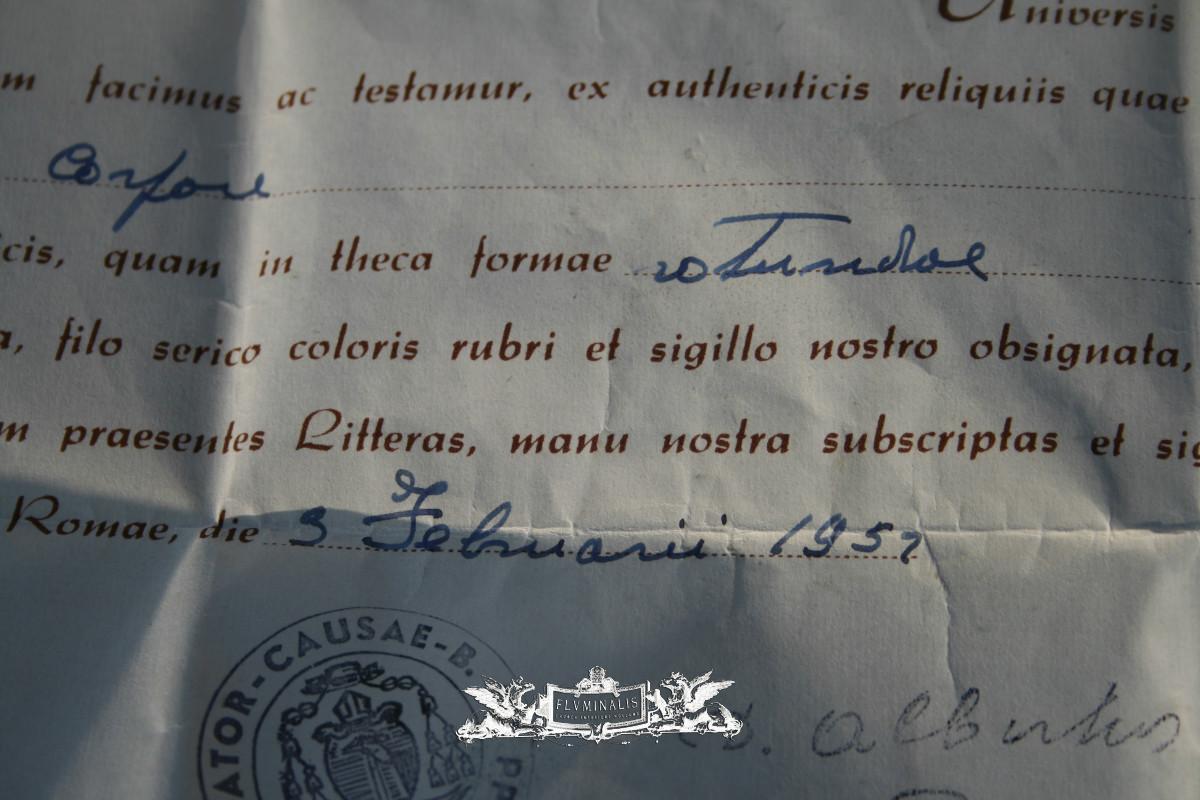 Universis
m facimus ac testamur, ex authenticis reliquiis quae
Corpore
cis, quam in theca formae rotundae
a, filo serico coloris rubri et sigillo nostro obsignata,
m praesentes Litteras, manu nostra subscriptas et sig
Romae, die 3 Februarii 1957
ATOR-CAUSAE-B.
FLVMINALIS
Albertus